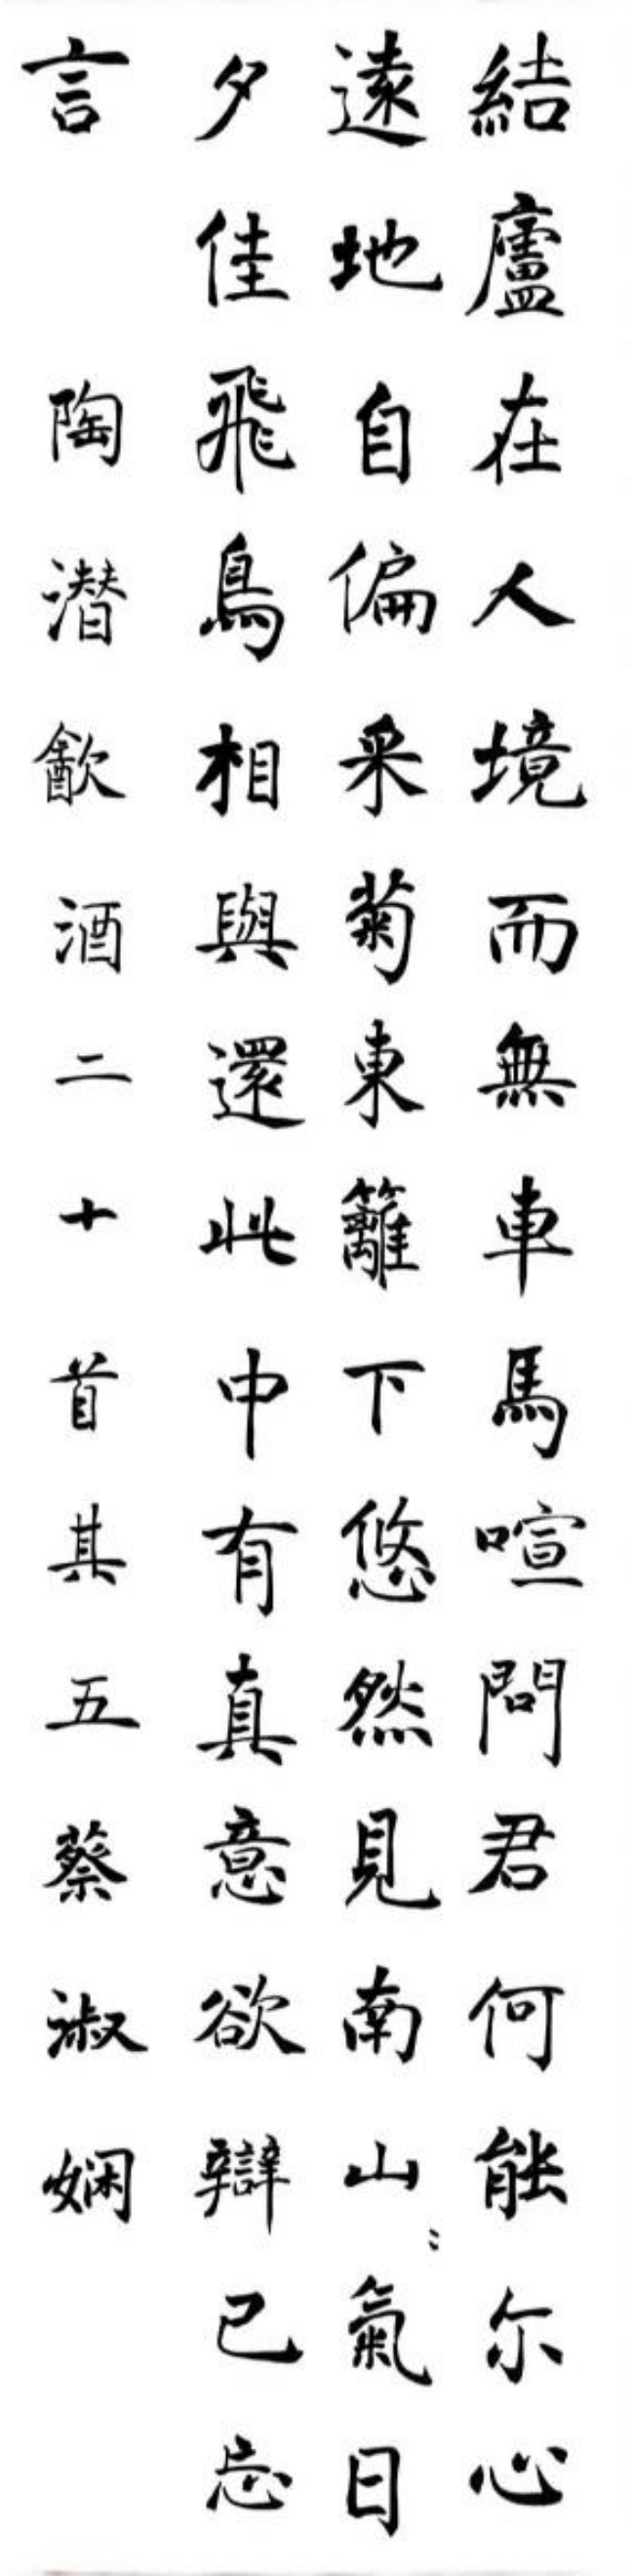 結廬在人境而無車馬喧問君何能尔心
遠地自偏采菊東籬下悠然見南山〻氣日
夕佳飛鳥相與還此中有真意欲辯已忘
言 陶潜歙酒二十首其五蔡淑娴